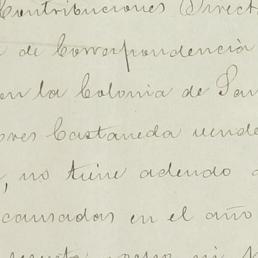 Contribuciones Direct
de Correspondencia
en la Colonia de San
ores Castaneda vende
, no tiene adeudo
causados en el año